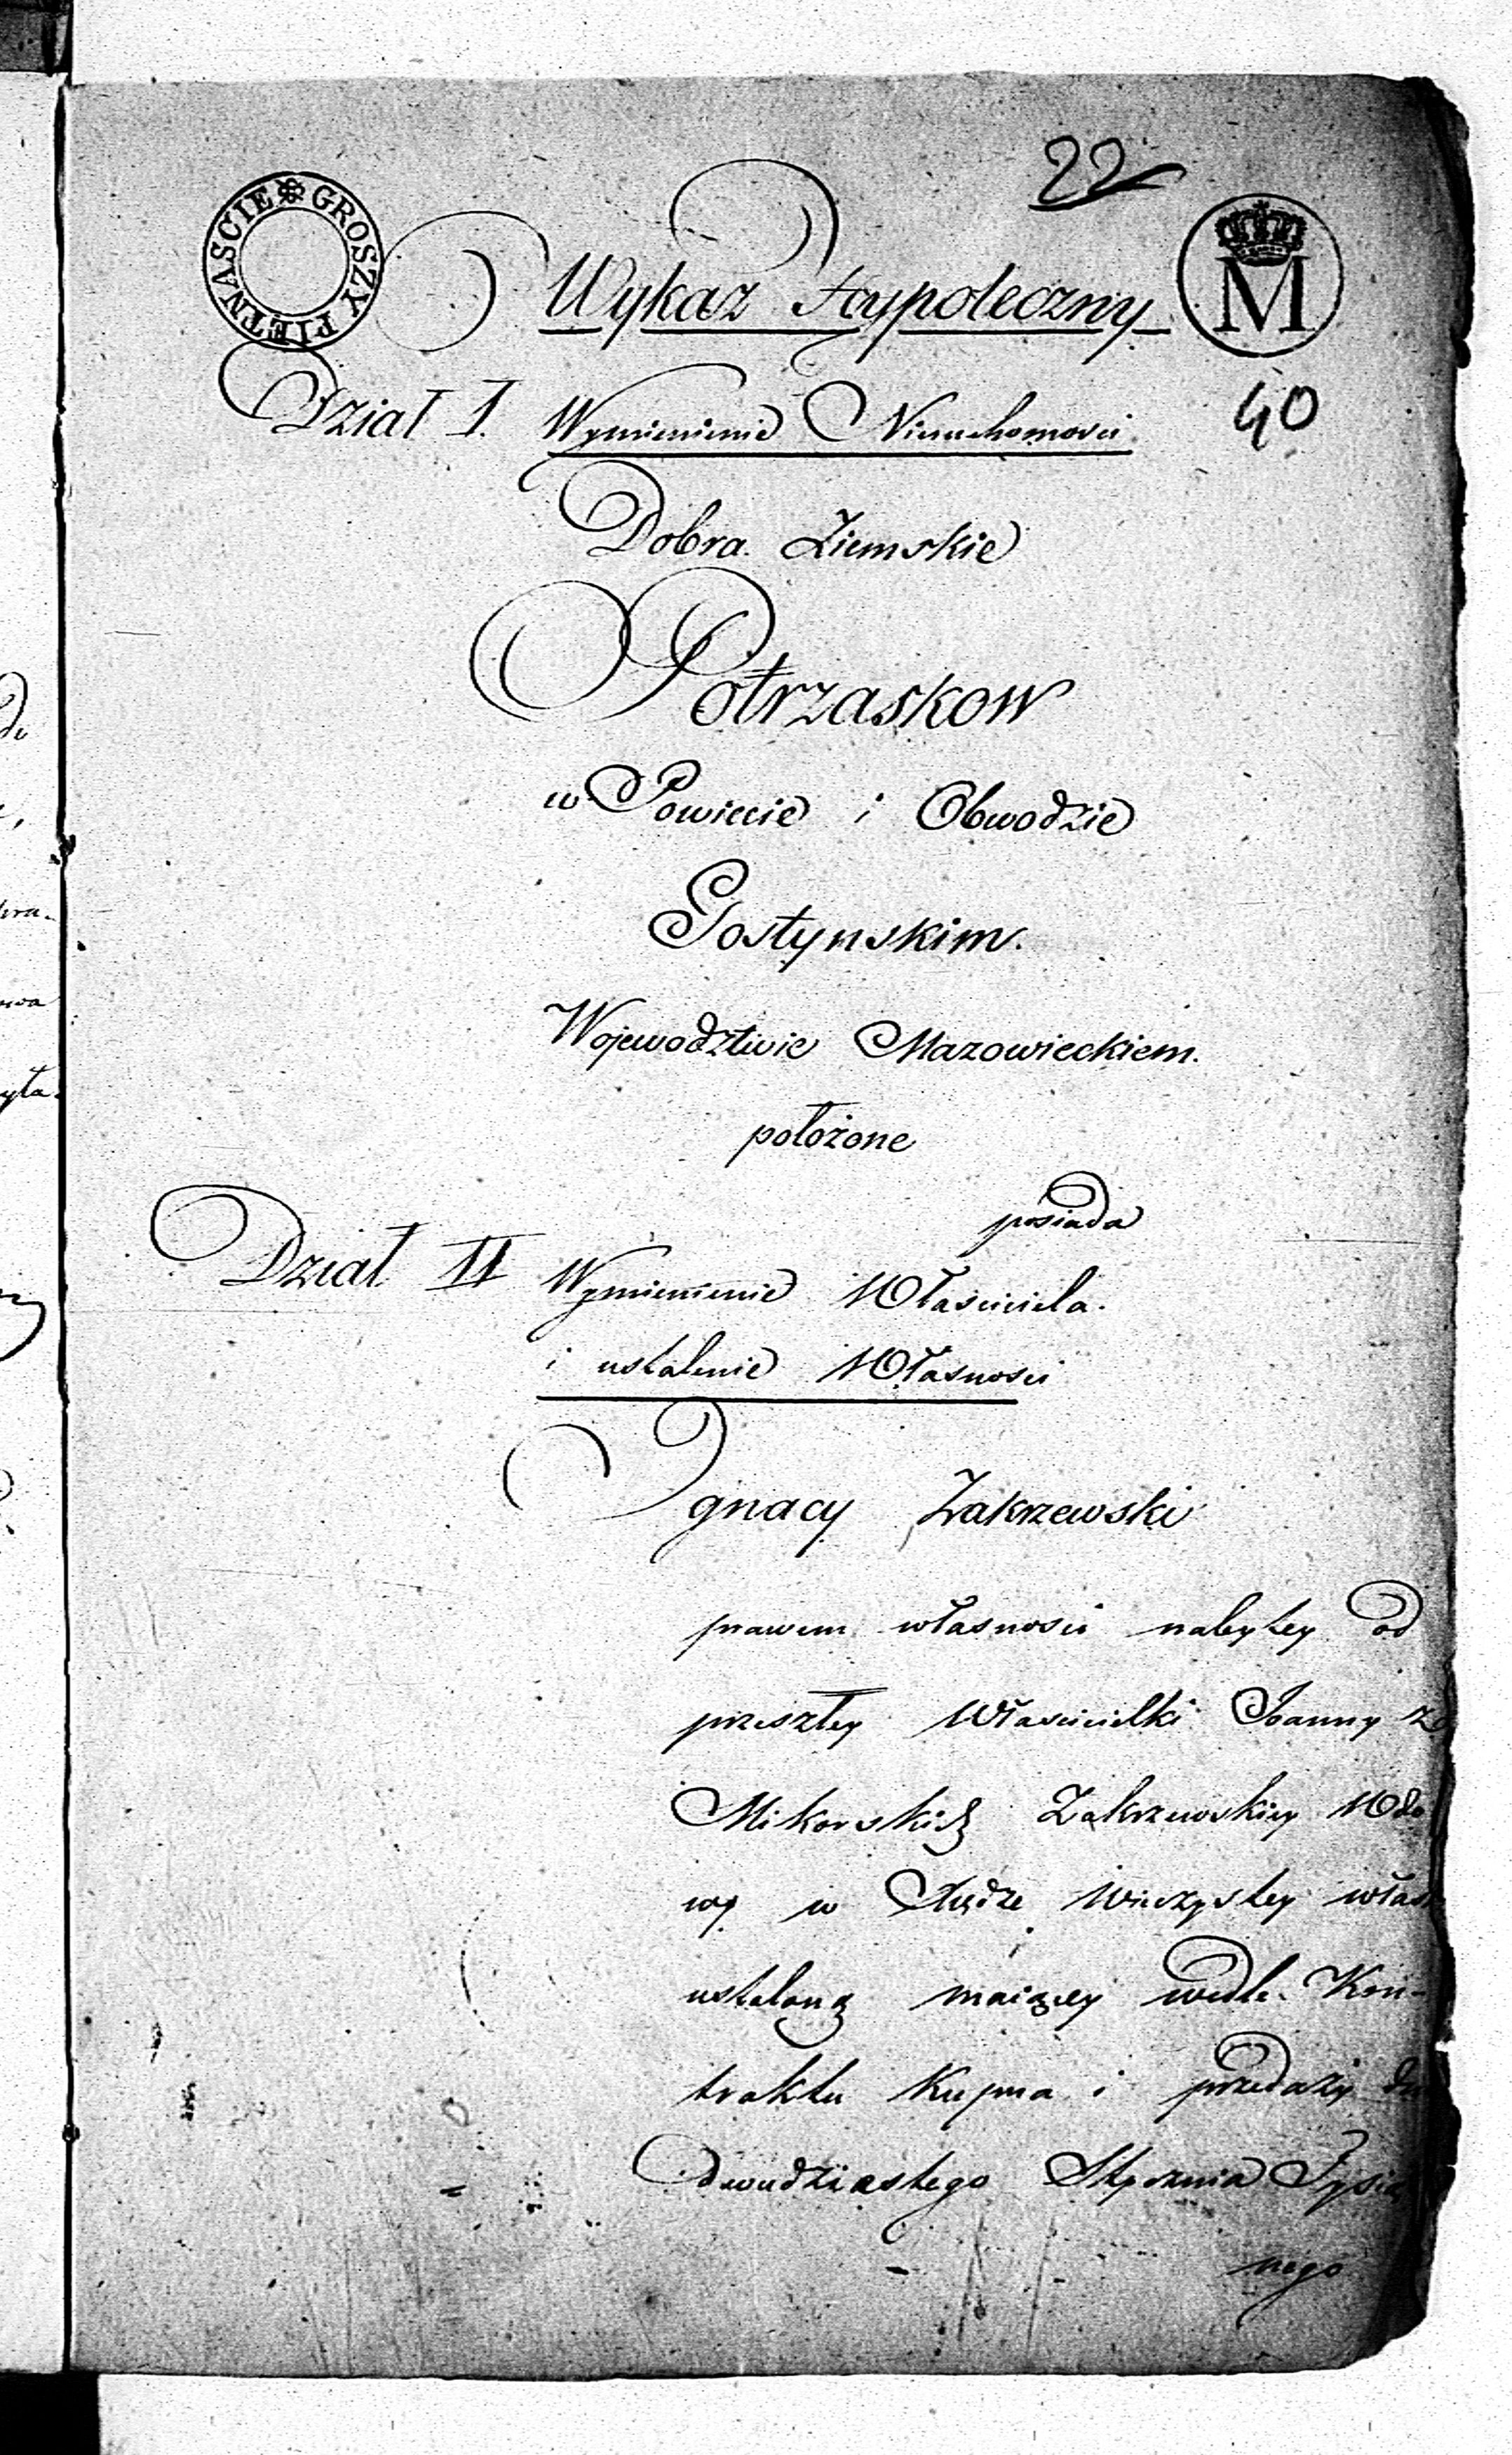 22
GROSZY PIETNASCIE
M
Wykaz Hypoteczny
40
Dział I. Wymienienie Nieruchomosci
Dobra Ziemskie
Potrzaskow
w Powiecie i Obwodzie
Gostynskim.
Wojewodztwie Mazowieckiem.
położone
posiada
Dział II Wymienienie Własciciela.
i ustalenie Własnosci
Ignacy Zakrzewski
prawem własnosci nabytey od
przeszłey Włascicielki Joanny z
Mikorskich Zakrzewskiey Wdo
wy w Xiędze Wieczystey włas
ustaloną maiącey wedle Kon-
traktu Kupna i przedaży
dwudziestego Stycznia Tysią
nego
yła.